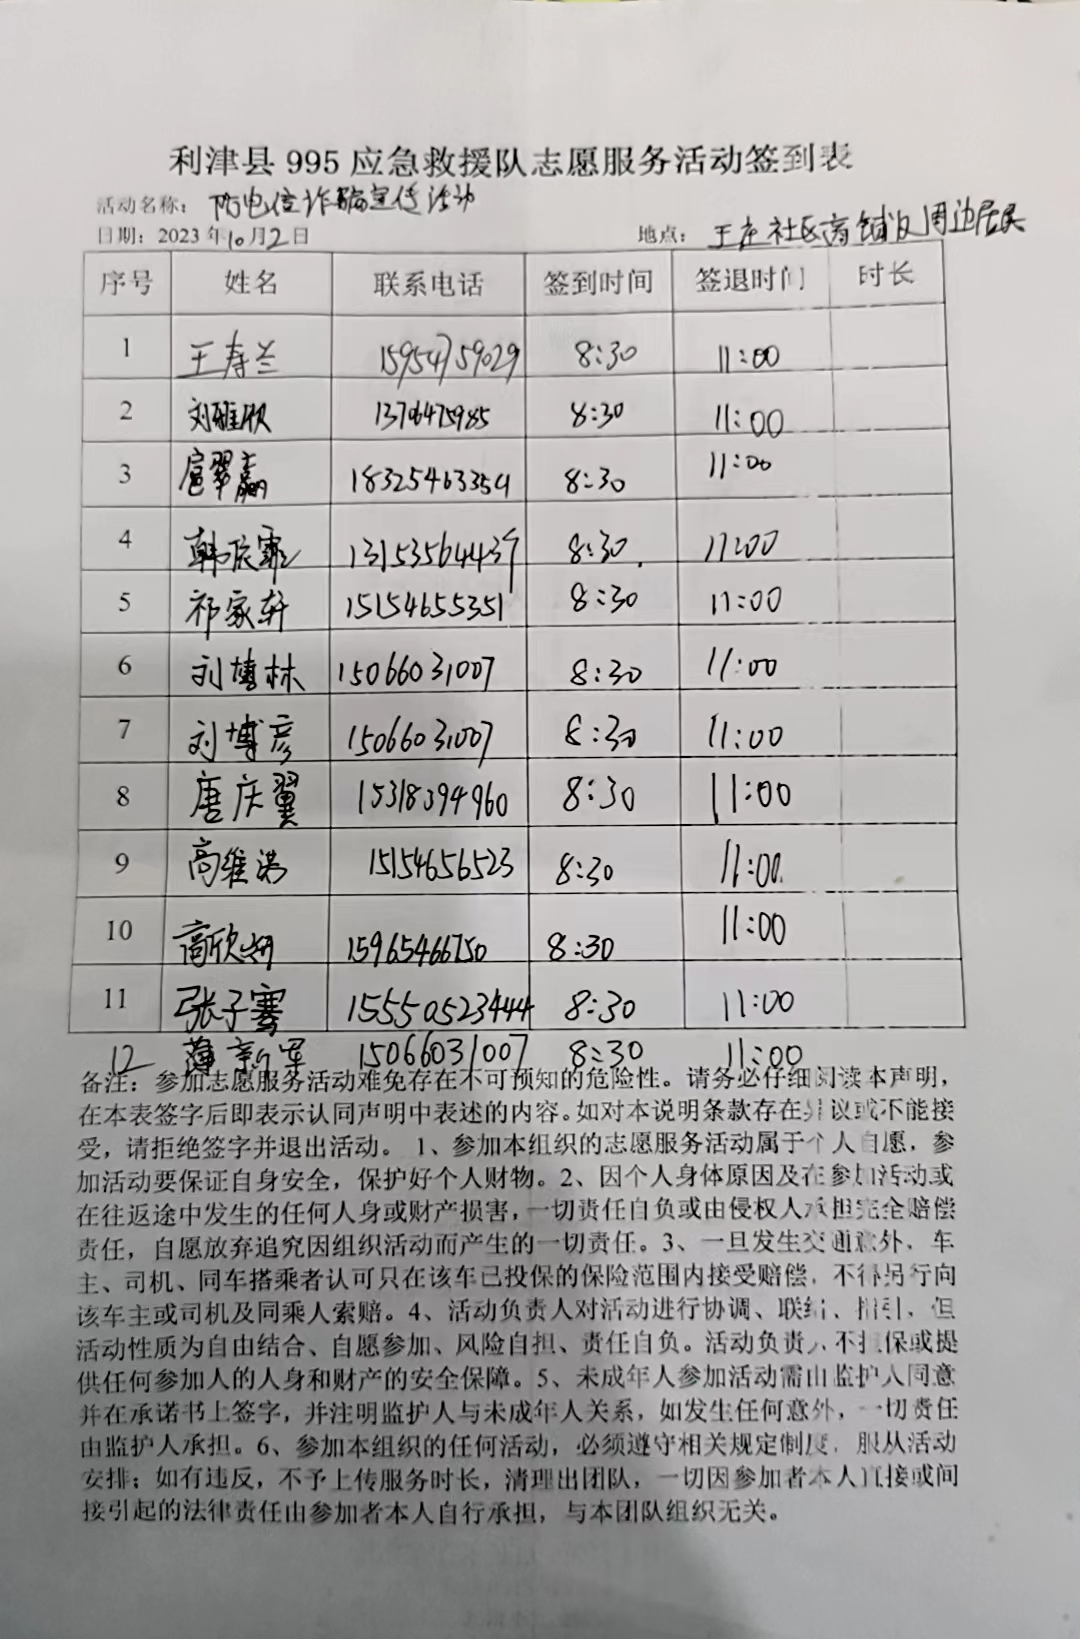 利津县 995 应急救援队志愿服务活动签到表
活动名称： 防电信诈骗宣传活动
日期：2023 年10月2日 地点： 王庄社区商铺及周边居民
序号 姓名 联系电话 签到时间 签退时间 时长
1 王寿兰 15954759029 8:30 11:00
2 刘雅欣 13706475985 8:30 11:00
3 扈翠嬴 18325463354 8:30 11:00
4 韩辰霏 13153564439 8:30 11:00
5 祁家轩 15154655351 8:30 11:00
6 刘博林 15066031007 8:30 11:00
7 刘博彦 15066031007 8:30 11:00
8 唐庆翼 15318394960 8:30 11:00
9 高维 15154656523 8:30 11:00
10 高欣妍 15965466750 8:30 11:00
11 张子骞 15550523444 8:30 11:00
12 薄新军 15066031007 8:30 11:00
备注：参加志愿服务活动难免存在不可预知的危险性。请务必仔细阅读本声明，
在本表签字后即表示认同声明中表述的内容。如对本说明条款存在异议或不能接
受，请拒绝签字并退出活动。 1、参加本组织的志愿服务活动属于个人自愿，参
加活动要保证自身安全，保护好个人财物。2、因个人身体原因及在参加活动或
在往返途中发生的任何人身或财产损害，一切责任自负或由侵权人承担完全赔偿
责任，自愿放弃追究因组织活动而产生的一切责任。3、一旦发生交通意外，车
主、司机、同车搭乘者认可只在该车已投保的保险范围内接受赔偿，不得另行向
该车主或司机及同乘人索赔。4、活动负责人对活动进行协调、联络、指引，但
活动性质为自由结合、自愿参加、风险自担、责任自负。活动负责人不担保或提
供任何参加人的人身和财产的安全保障。5、未成年人参加活动需由监护人同意
并在承诺书上签字，并注明监护人与未成年人关系，如发生任何意外，一切责任
由监护人承担。6、参加本组织的任何活动，必须遵守相关规定制度，服从活动
安排；如有违反，不予上传服务时长，清理出团队，一切因参加者本人直接或间
接引起的法律责任由参加者本人自行承担，与本团队组织无关。